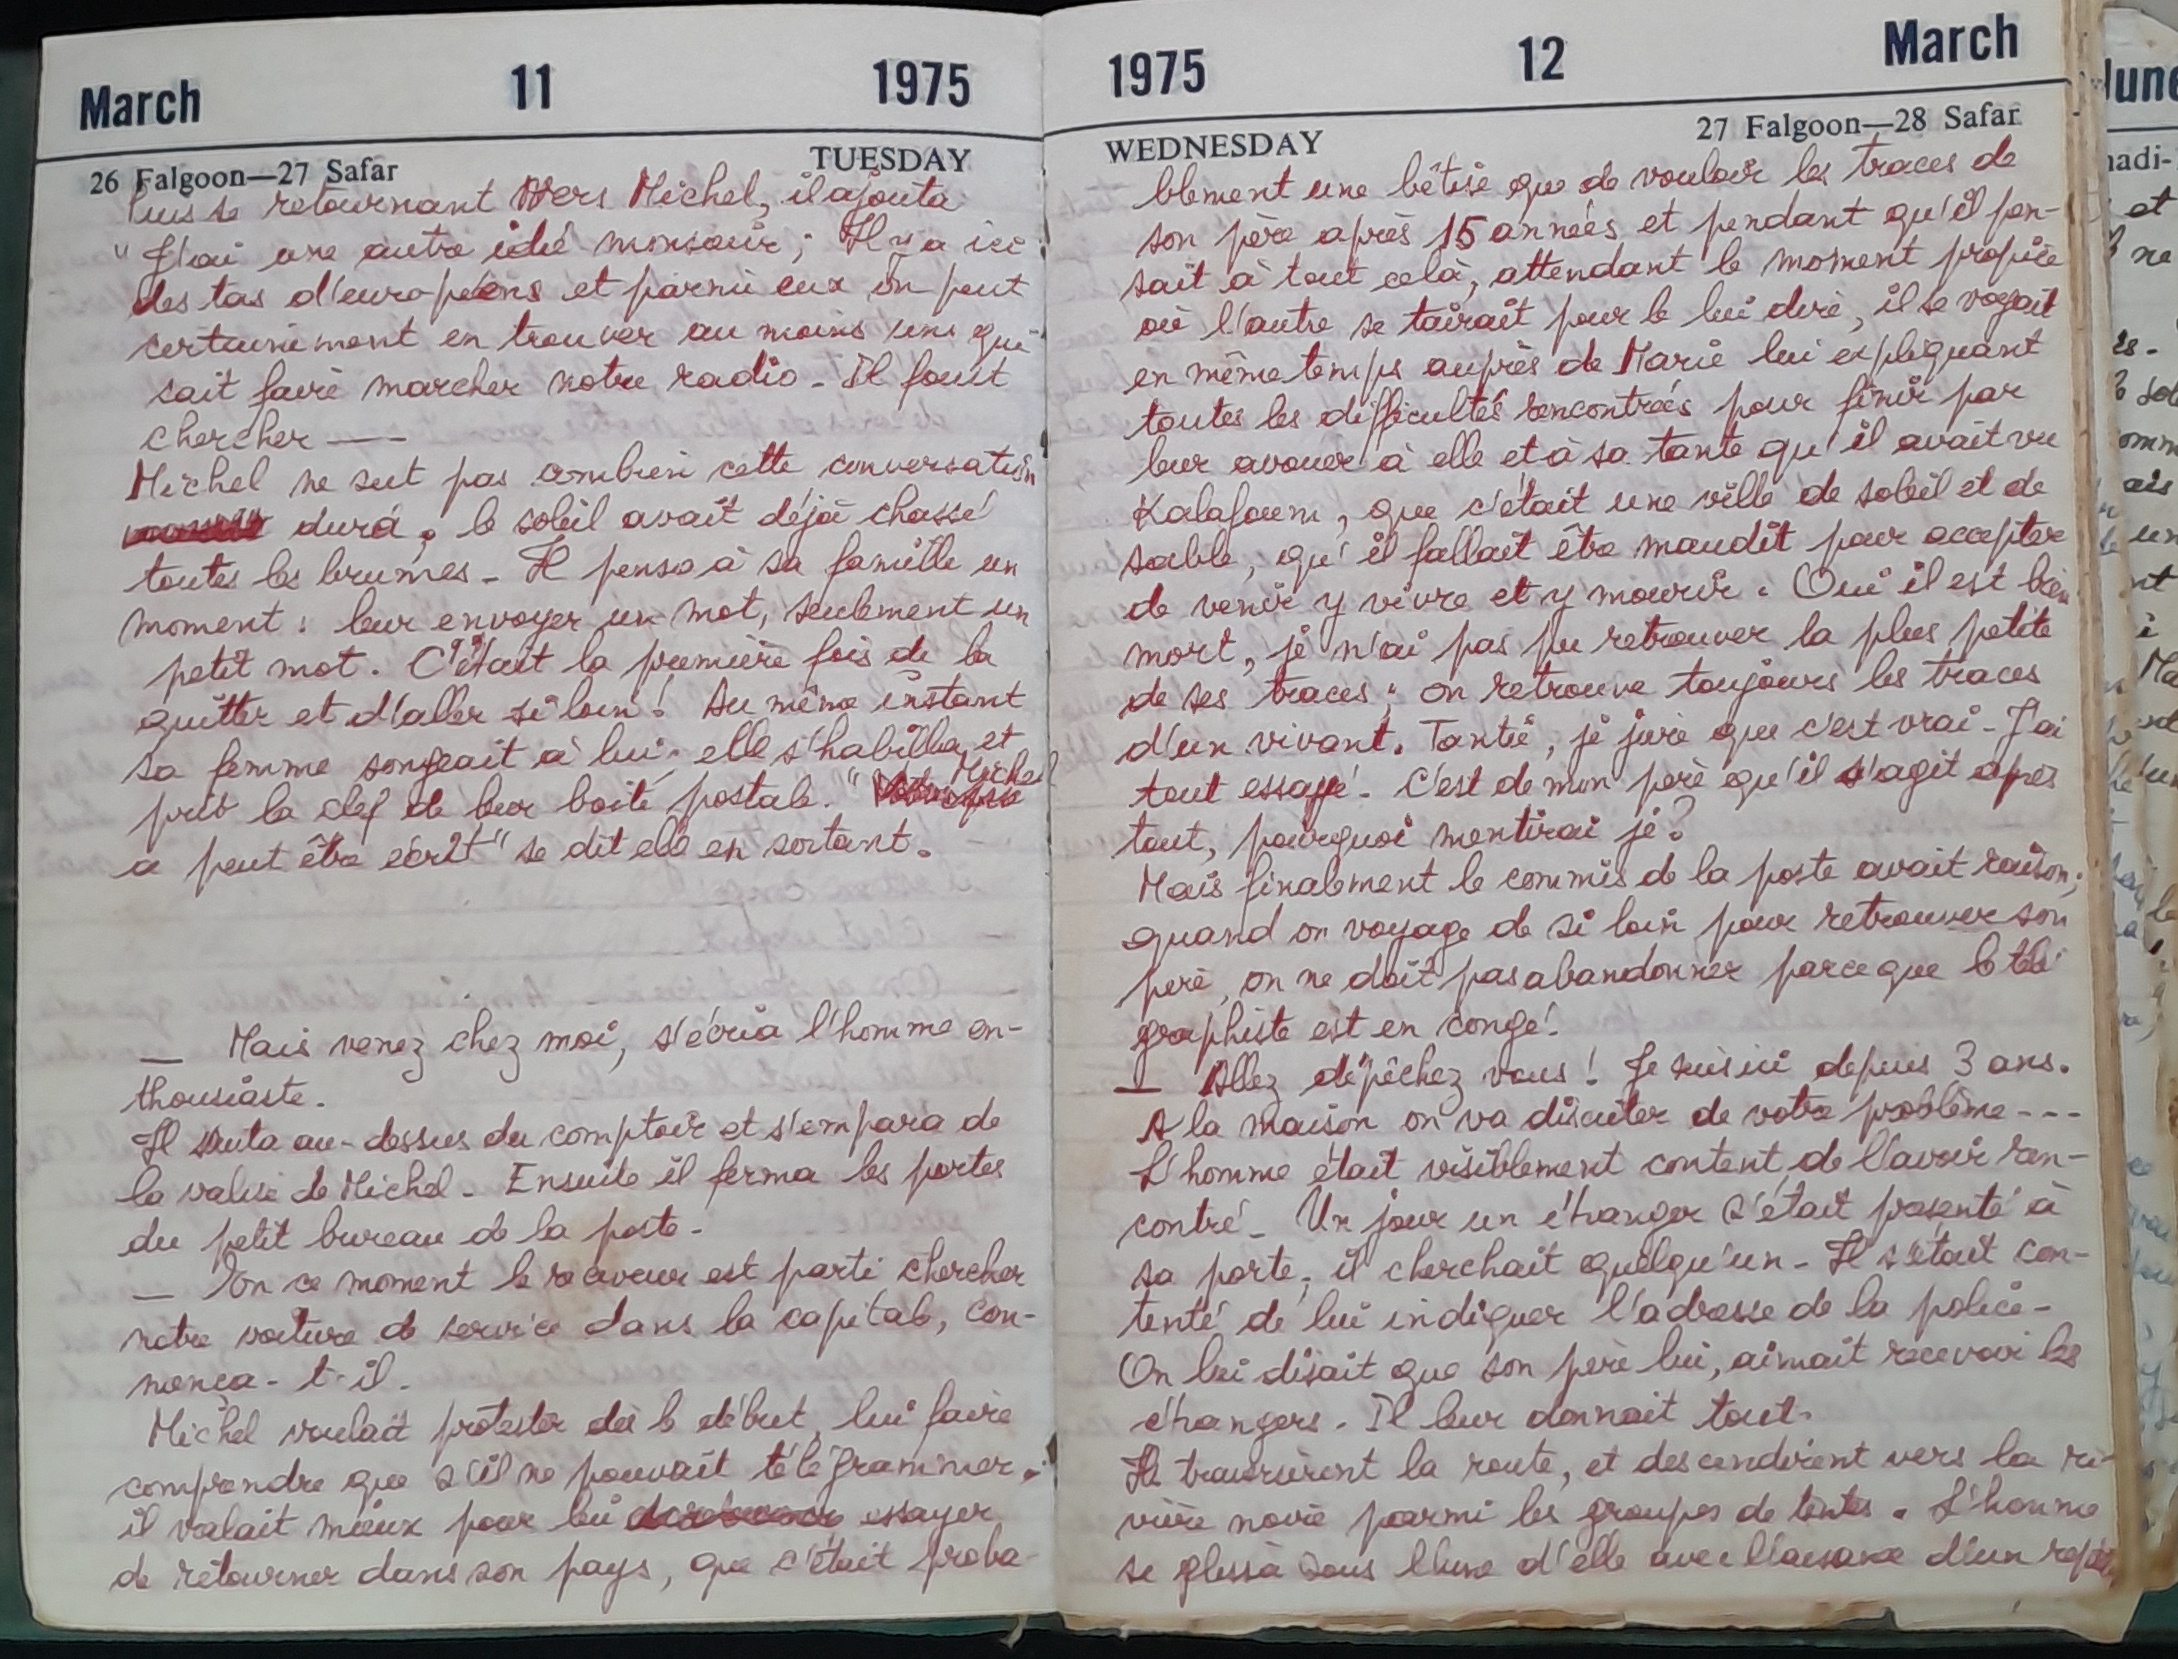 March 11 1975
26 Falgoon—27 Safar TUESDAY
Puis se retournant vers Michel, il ajouta
"J'ai une autre idée monsieur; Il y a ici
des tas d'européens et parmi eux on peut
certainement en trouver au moins un qui
sait faire marcher notre radio - Il faut
chercher ——
Michel ne sut pas combien cette conversation
dura; le soleil avait déjà chassé
toutes les brumes - Il pensa à sa famille un
moment: leur envoyer un mot, seulement un
petit mot. C'était la première fois de la
quitter et d'aller si loin! Au même instant
sa femme songeait à lui; elle s'habilla et
prit la clef de leur boîte postale. " Michel
a peut être écrit" se dit elle en sortant.
— Mais venez chez moi, s'écria l'homme en-
thousiaste.
Il sauta au-dessus du comptoir et s'empara de
la valise de Michel - Ensuite il ferma les portes
du petit bureau de la poste -
— En ce moment le receveur est parti chercher
notre voiture de service dans la capitale, con-
nonça-t-il.
Michel voulait protester dès le début, lui faire
comprendre que s'il ne pouvait télégrammer,
il valait mieux pour lui essayer
de retourner dans son pays, que c'était proba-
1975 12 March
WEDNESDAY 27 Falgoon—28 Safar
blement une bêtise que de vouloir les traces de
son père après 15 années et pendant qu'il pen-
sait à tout celà, attendant le moment propice
où l'autre se tairait pour le lui dire, il se voyait
en même temps auprès de Marie lui expliquant
toutes les difficultés rencontrées pour finir par
leur avouer à elle et à sa tante qu'il avait vu
Kalafoum, que c'était une ville de soleil et de
sable, qu'il fallait être maudit pour accepter
de venir y vivre et y mourir. Oui il est bien
mort, je n'ai pas pu retrouver la plus petite
de ses traces; on retrouve toujours les traces
d'un vivant. Tantie, je jure que c'est vrai - J'ai
tout essayé - C'est de mon père qu'il s'agit après
tout, pourquoi mentirai je?
Mais finalement le commis de la poste avait raison;
quand on voyage de si loin pour retrouver son
père, on ne doit pas abandonner parce que le télé
graphiste est en congé!
— Allez dépêchez vous! Je suis ici depuis 3 ans.
A la maison on va discuter de votre problème ---
L'homme était visiblement content de l'avoir ren-
contré - Un jour un étranger s'était présenté à
sa porte; il cherchait quelqu'un - Il s'était con-
tenté de lui indiquer l'adresse de la police -
On lui disait que son père lui, aimait recevoir les
étrangers. Il leur donnait tout.
Ils traversèrent la route, et descendirent vers la ri-
vière noire parmi les groupes de tentes. L'homme
se glissa sous l'une d'elle avec l'aisance d'un reptile